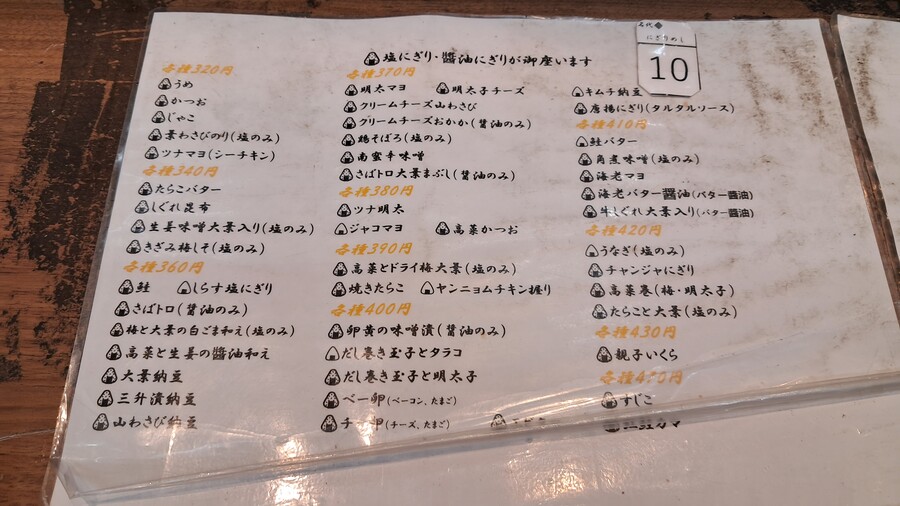 塩にぎり・醬油にぎりが御座います
名代
にぎりめし
10
各種320円
うめ
かつお
じゃこ
葉わさびのり(塩のみ)
ツナマヨ(シーチキン)
各種340円
たらこバター
しぐれ昆布
生姜味噌大葉入り(塩のみ)
きざみ梅しそ(塩のみ)
各種360円
鮭 しらす塩にぎり
さばトロ(醤油のみ)
梅と大葉の白ごま和え(塩のみ)
高菜と生姜の醬油和え
大葉納豆
三升漬納豆
山わさび納豆
各種370円
明太マヨ 明太子チーズ
クリームチーズ山わさび
クリームチーズおかか(醤油のみ)
鶏そぼろ(塩のみ)
南蛮辛味噌
さばトロ大葉まぶし(醤油のみ)
各種380円
ツナ明太
ジャコマヨ 高菜かつお
各種390円
高菜とドライ梅大葉(塩のみ)
焼きたらこ ヤンニョムチキン握り
各種400円
卵黄の味噌漬(醤油のみ)
だし巻き玉子とタラコ
だし巻き玉子と明太子
ベー卵(ベーコン、たまご)
チー卵(チーズ、たまご)
キムチ納豆
唐揚にぎり(タルタルソース)
各種410円
鮭バター
角煮味噌(塩のみ)
海老マヨ
海老バター醬油(バター醬油)
牛しぐれ大葉入り(バター醬油)
各種420円
うなぎ(塩のみ)
チャンジャにぎり
高菜巻(梅・明太子)
たらこと大葉(塩のみ)
各種430円
親子いくら
各種4
すじこ